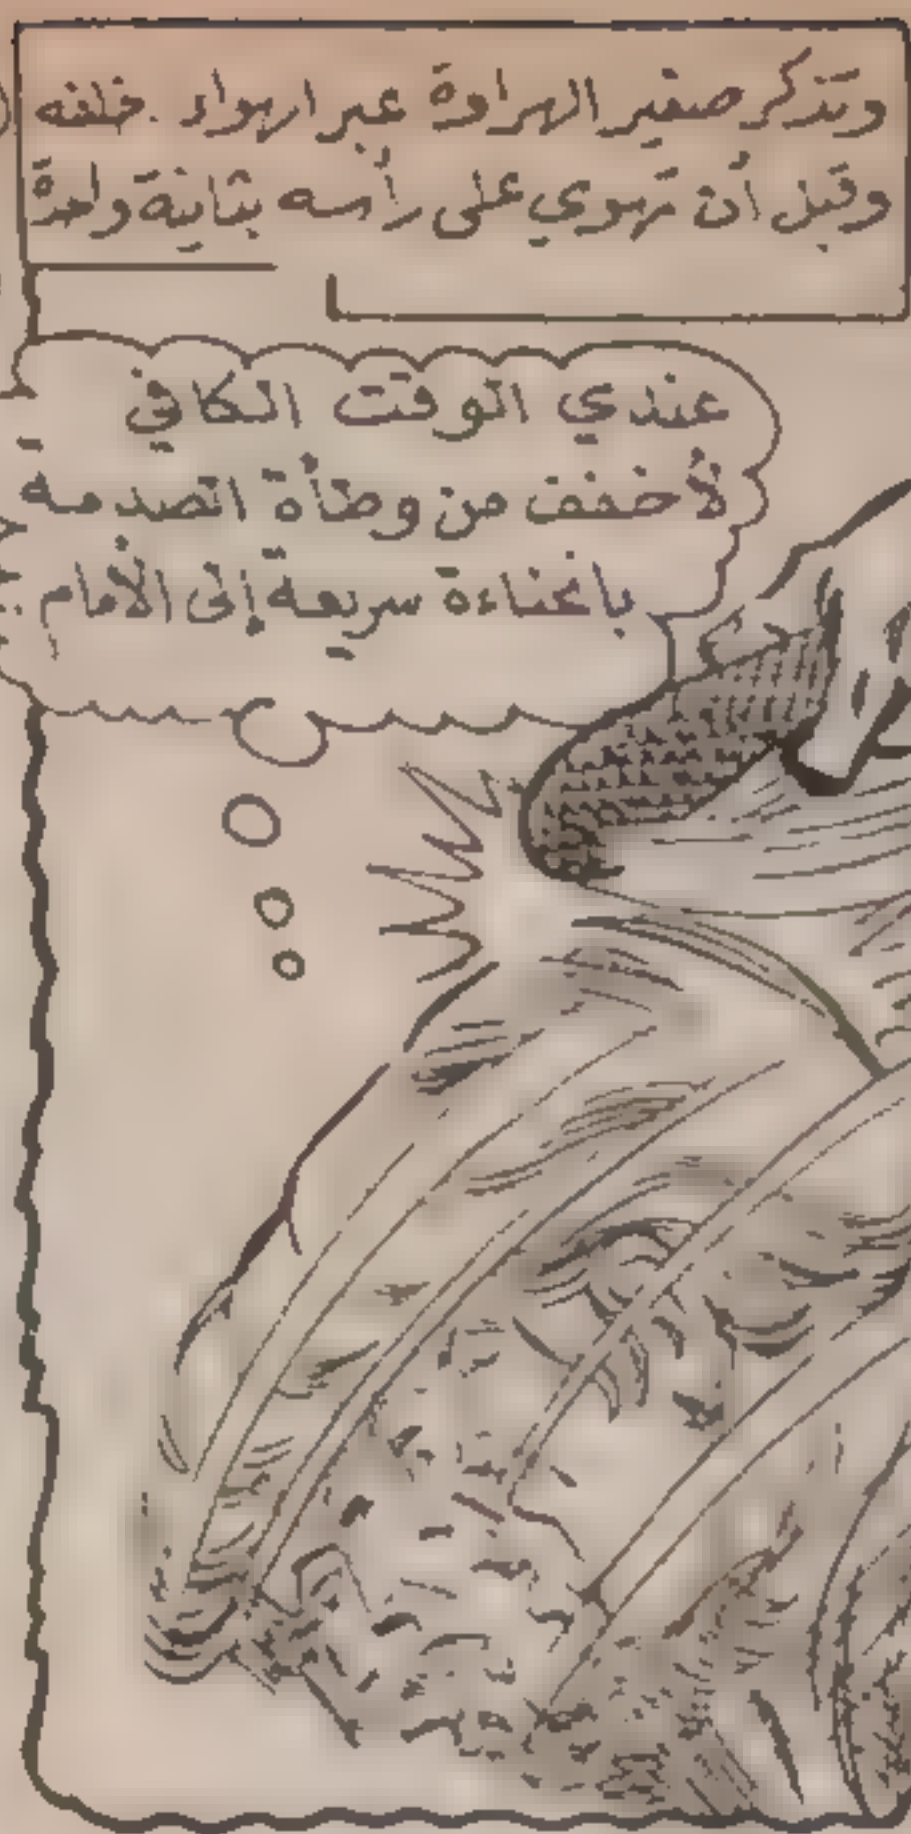 وتذكر صفير الهراوة عبر الهواء . خلفه
وقبل أن تهوي على رأسه بثانية واحدة
عندي الوقت الكافي
لأخفف من وطأة الصدمة
بانحناءة سريعة إلى الأمام